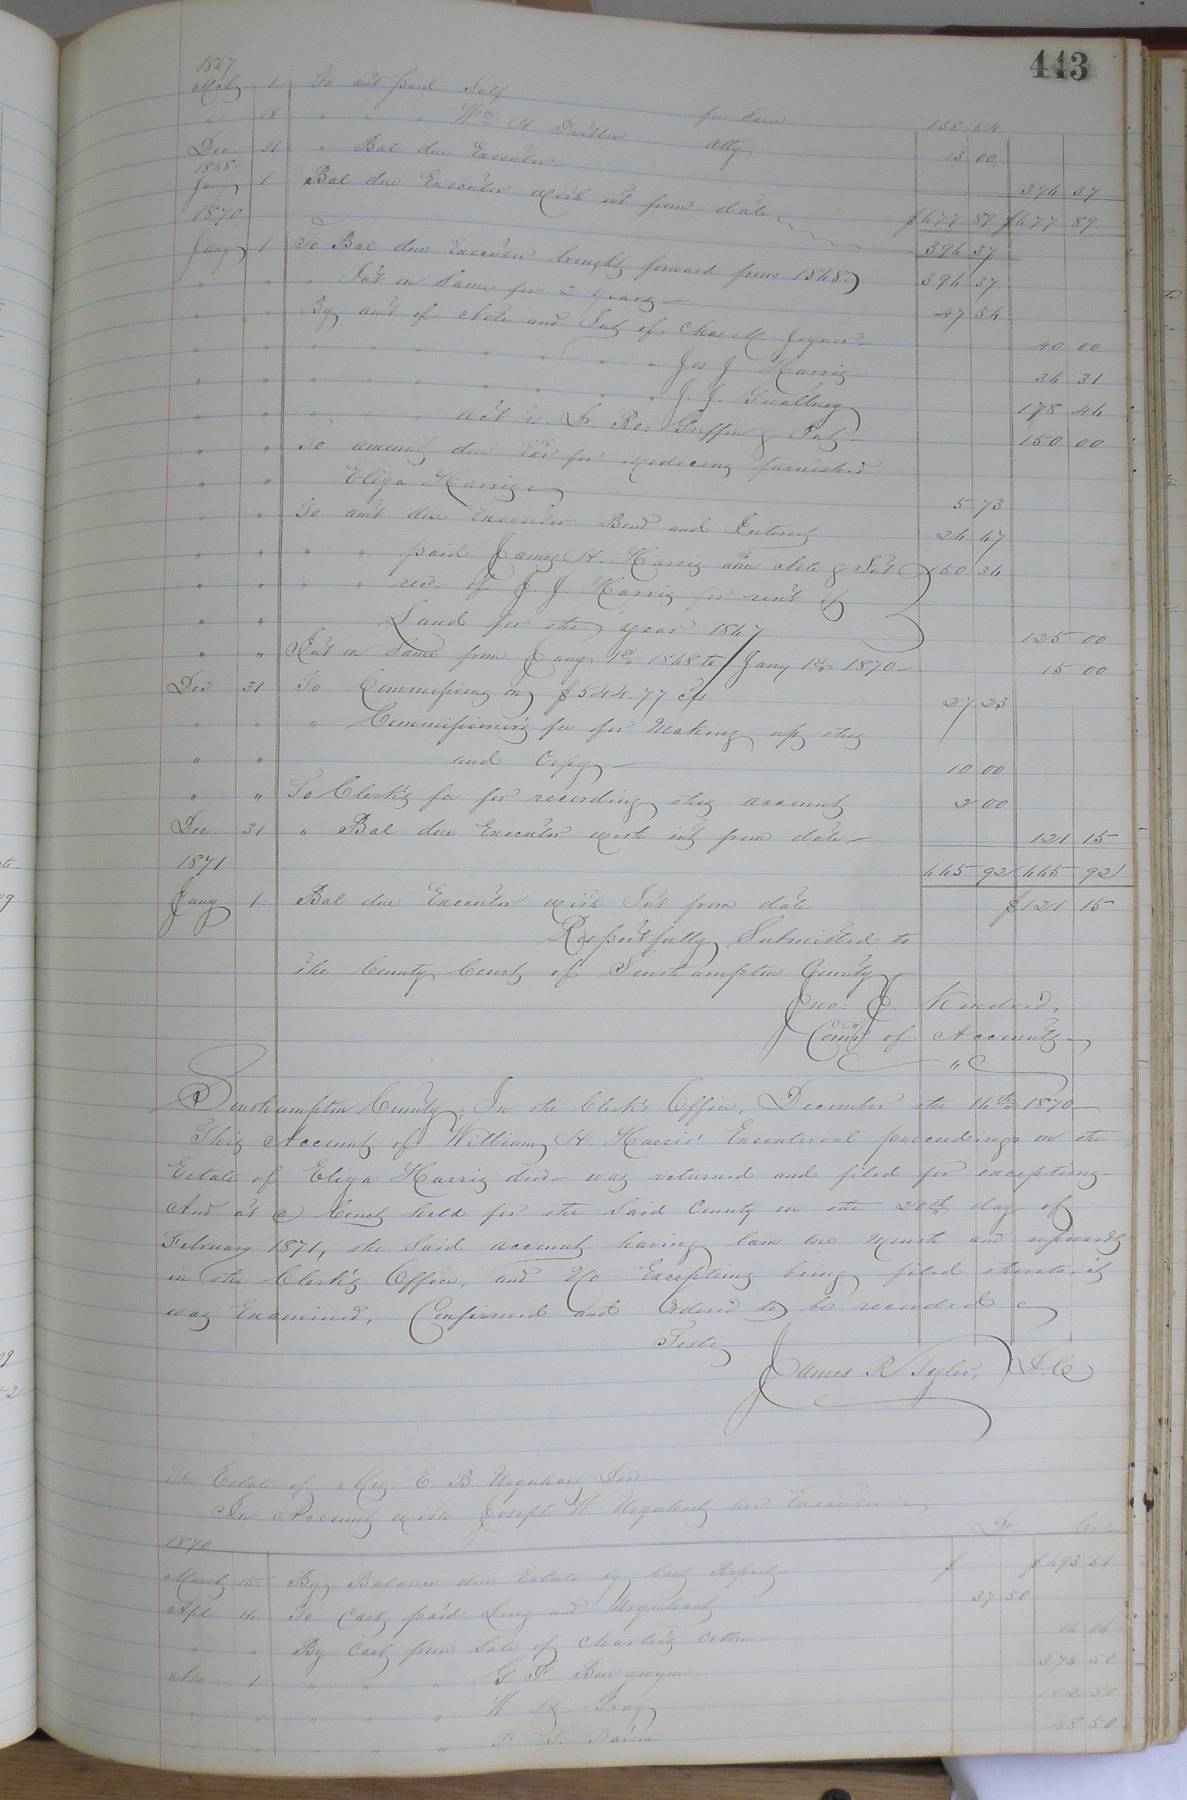 443
1867
Mch 1 To amt paid Self for Same 138 54
" 18 " " " Wm. H. Atty 13 00
Dec. 31 " Bal due Executor 396 37
1868 $677 89 $677 89
Jany 1 Bal due Executor with int from date 396 37
1870
Jany 1 To Bal due Executor brought forward from 1868 396 37
" " " Int on Same for 2 years 47 56
" " By amt of Note and Int of Chas M. Joyner 40 00
" " " " " " " " Jos J. Harris 36 31
" " " " " " " " J. J. Gwaltney 178 46
" " " " " act vs. Dr Ro: Griffin & Int 150 00
" " To amount due Exr for Medicine furnished
" " Eliza Harris 5 73
" " To amt due Executor Bond and Interest 26 67
" " " " paid James H. Harris amt Note & Int 150 36
" " " " rec. of J. J. Harris for rent of
" " Land for the year 1867 125 00
" " Int on Same from Jany 1st 1868 to Jany 1st 1870 15 00
Dec 31 To Commissions on $544.77 cts 27 23
" " " Commissioner's fee for Making up this
" " and Copy 10 00
" " To Clerk's fee for recording this account 2 00
Dec. 31 " Bal due Executor with int from date 121 15
1871 665 92 665 92
Jany 1 Bal due Executor with Int from date $121 15
Respectfully Submitted to
the County Court of Southampton County
Jno: J. Kindred,
Comr of Accounts
Southampton County, In the Clerk's Office, December the 16th 1870
This Account of William H. Harris' Executorial proceedings on the
Estate of Eliza Harris decd was returned and filed for exceptions
And at a Court held for the Said County on the 20th day of
February 1871, the Said account having lain one Month and upwards
in the Clerk's Office, and No Exceptions being filed thereto it
was Examined, Confirmed and Ordered to be recorded
Teste
James R Tyler, D.C
The Estate of Mrs. E. B Urquhart Dec
In Account with Joseph W Urquhart her Executor
1870 Dr Cr
March 15 By Balance due Estate by last Report $ $693 51
Apl To Cash paid and Urquhart 37 50
" " By Cash from Sale of Cotton
Nov 1 " " " G F. Burgwyn 374 50
" " " " " W H Gray 102 50
" " " " " 48 50